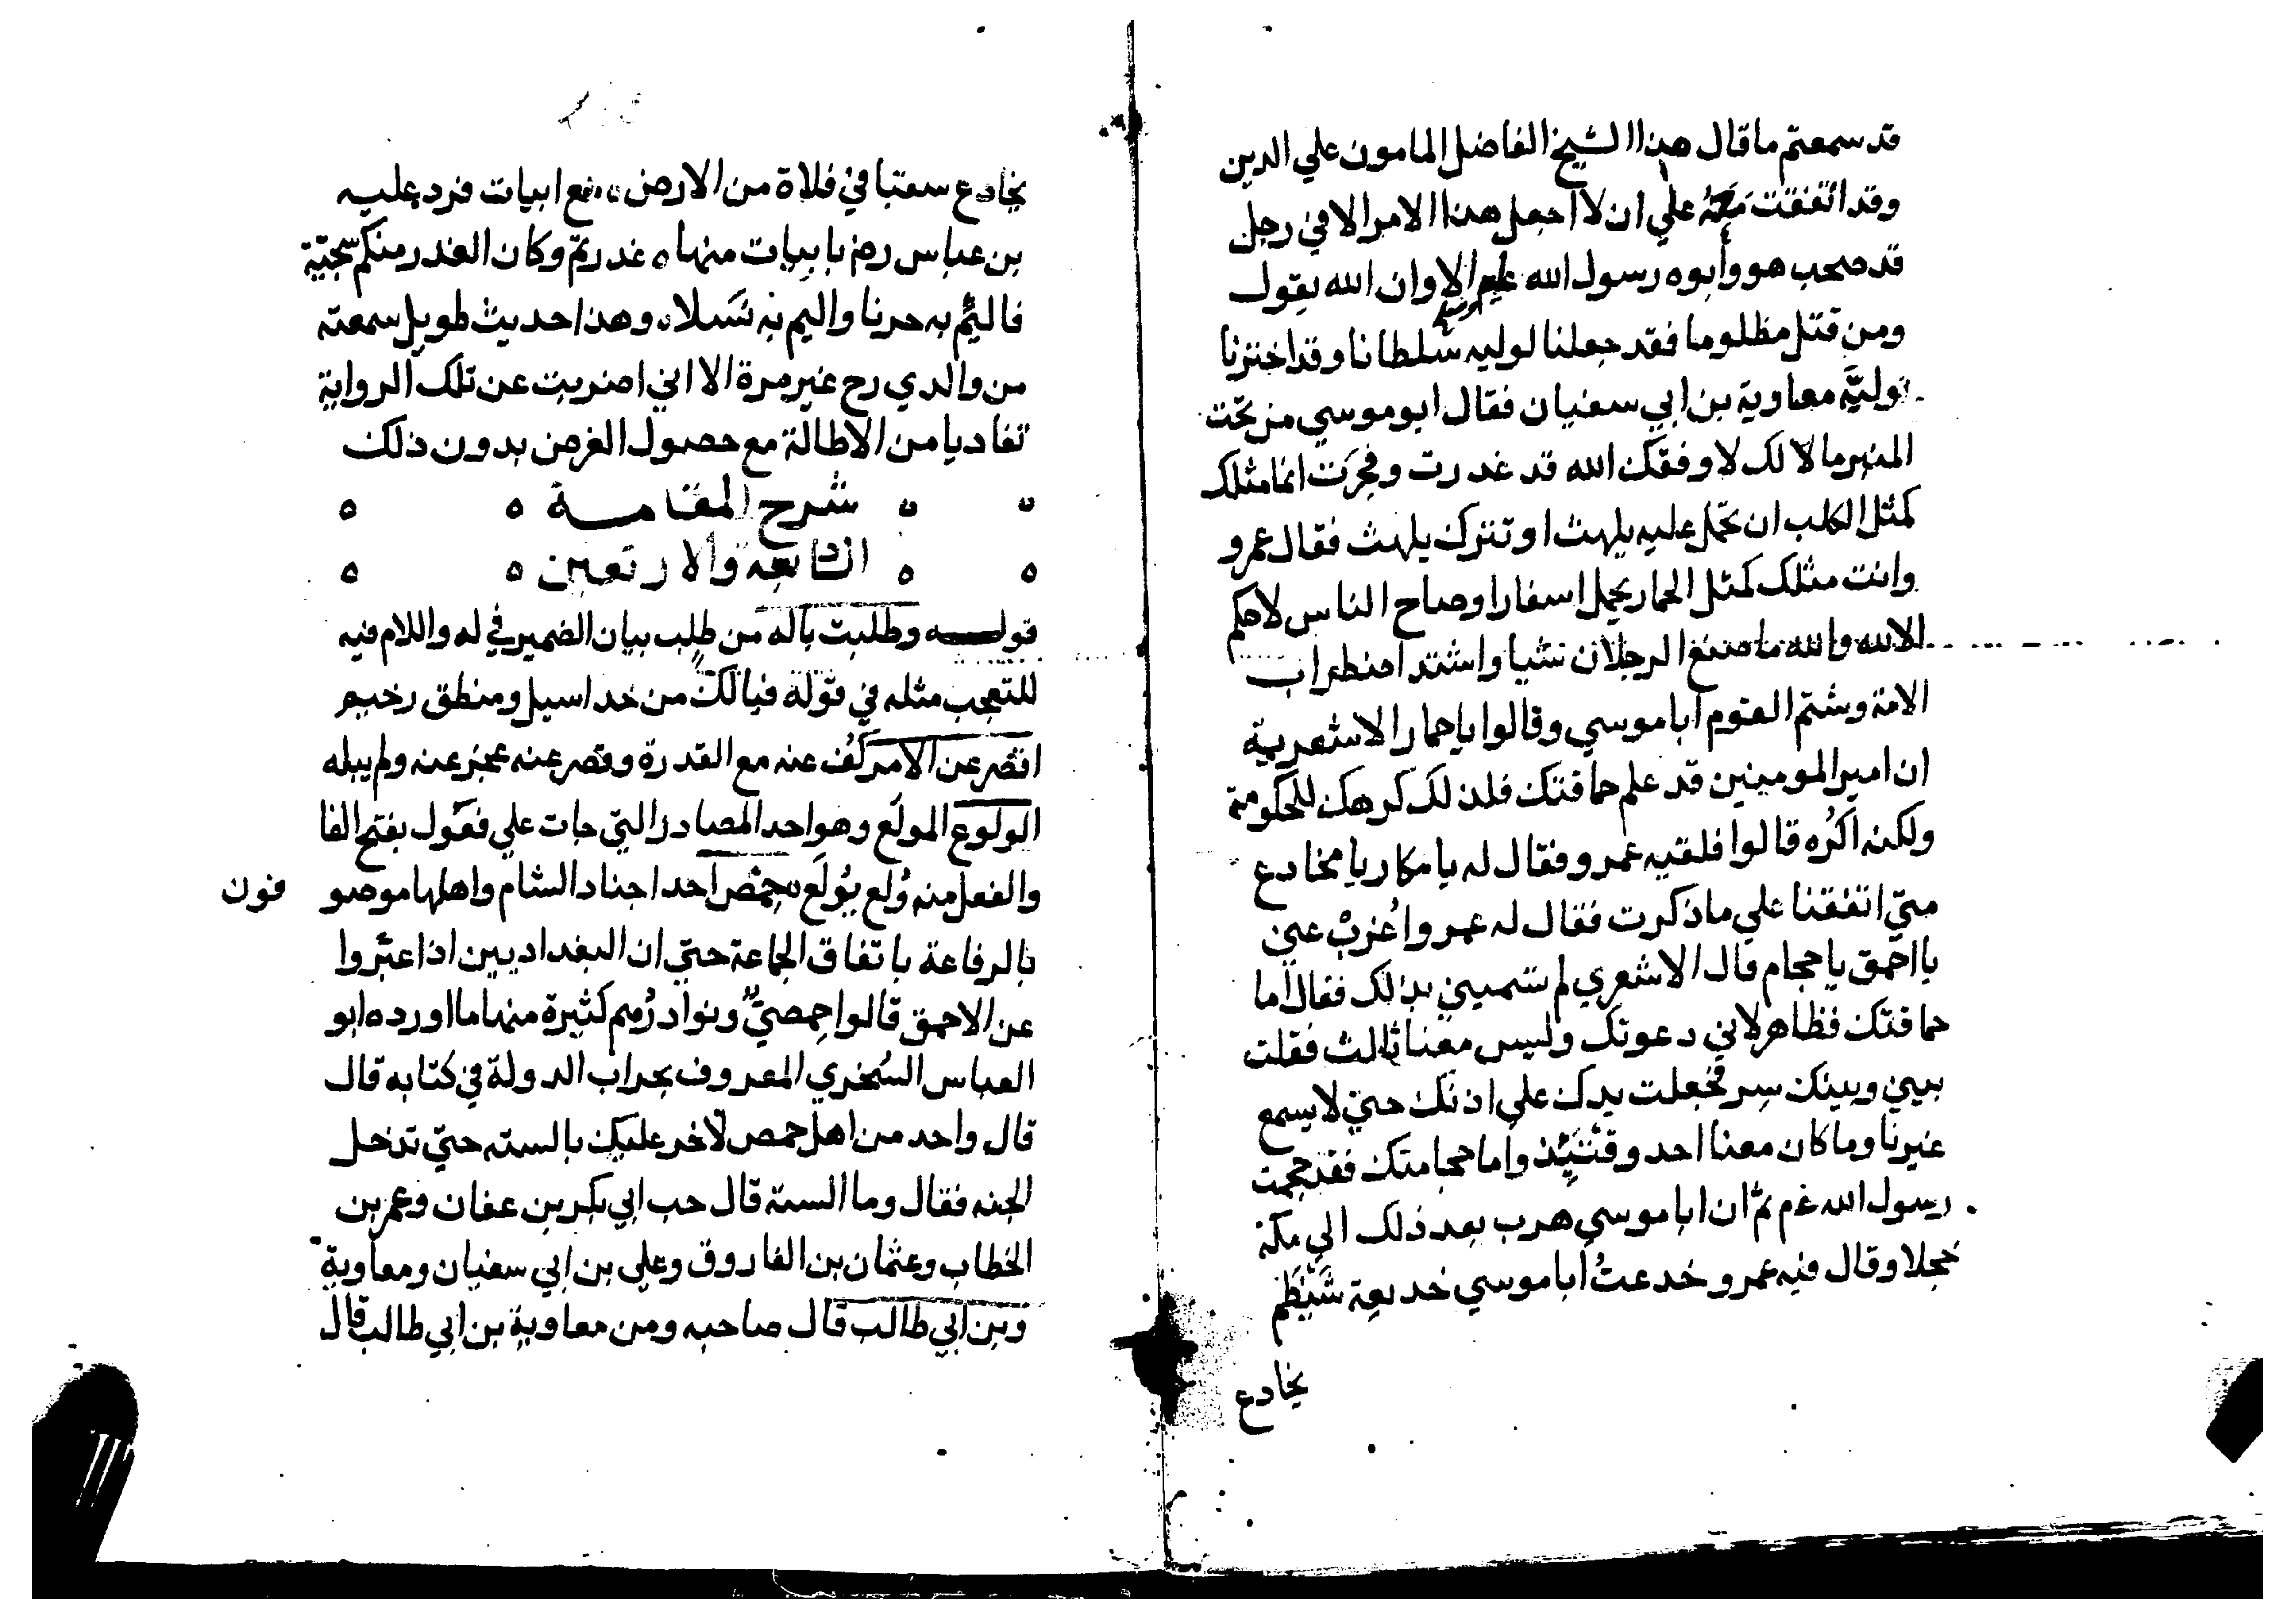 قد سمعتم ما قال هذا الشيخ الفاضل المامون علي الدين
وقد اتفقت معه علي ان لا اجعل هذا الامر الا في رجل
قد صحب هو وأبوه رسول الله الا وان الله يقول
ومن قتل مظلوما فقد جعلنا لوليه سلطانا وقد اخترنا
توليَّة معاوية بن ابي سفيان فقال ابو موسي من تحت
المنبر مالا لك لا وفقك الله قد غدرت وفجرَت انما مثلك
كمثل الكلب ان تحمل عليه يلهث او تتركه يلهث فقال عمرو
وانت مثلك كمثل الحمار يحمل اسفارا وصاح الناس لا حكم
الا لله والله ما صنع الرجلان شيا واشتد اضطراب
الامة وشتم القوم أبا موسي وقالوا يا حمار الاشعريية
ان امير المومنين قد علم حماقتك فلذلك كرهك للحكومة
ولكنه اُكرُه قالوا فلقيه عمرو فقال له يا مكار يا مخادع
متي اتفقنا علي ما ذكرت فقال له عمرو اُعْزبْ عني
يا احمق يا حجام قال الاشعري لم تسميني بذلك فقال أما
حماقتك فظاهر لاني دعوتك وليس معنا ثالث فقلت
بيني وبينك سر فجعلت يدك علي اذنك حتي لا يسمع
غيرنا وما كان معنا احد وقتئيذ واما حجامتك فقد حجمت
رسول الله عم ثم ان ابا موسي هرب بعد ذلك الي مكة
خجلا وقال فيه عمرو خدعتُ أبا موسي خديعة شَيْظَم
يخادع
يخادع سقبا في فلاة من الارض مع ابيات فرد عليه
بن عباس رض بابيات منها ه غدرتم وكان الغدر منكم سجيّة
وهذا حديث طويل سمعته
من والدي رح غير مرة الا اني اضربت عن تلك الرواية
تفاديا من الاطالة مع حصول الغرض بدون ذلك
شرح المقامة
التاسعة والاربعين
قوله وطلبت باله من طلب بيان الضمير في له واللام فيه
للتعجب مثله في قوله فيالك من خد اسيل ومنطق رخيم
اقصر عن الامر كَف عنه مع القدرة وقصر عنه عجز عنه ولم يبله
الولوع المولع وهو احد المصادر التي جات علي فعول بفتح الفا
والفعل منه وُلع يُولَع ه حمص احد اجناد الشام واهلها موصوفون
بالرقاعة باتفاق الجماعة حتي ان البغداديين اذا عبّروا
عن الاحمق قالوا حِمصيٌّ ونوادرُهم كثيرة منها ما اورده ابو
العباس السُخري المعروف بجراب الدولة في كتابه قال
قال واحد من اهل حمص لآخر عليك بالسته حتي تدخل
الجنه فقال وما الستة قال حب ابي بكر بن عفان وعمر بن
الخطاب وعثمان بن الفاروق وعلي بن ابي سفيان ومعاوية
وبن ابي طالب قال صاحبه ومن معاوية بن ابي طالب قال